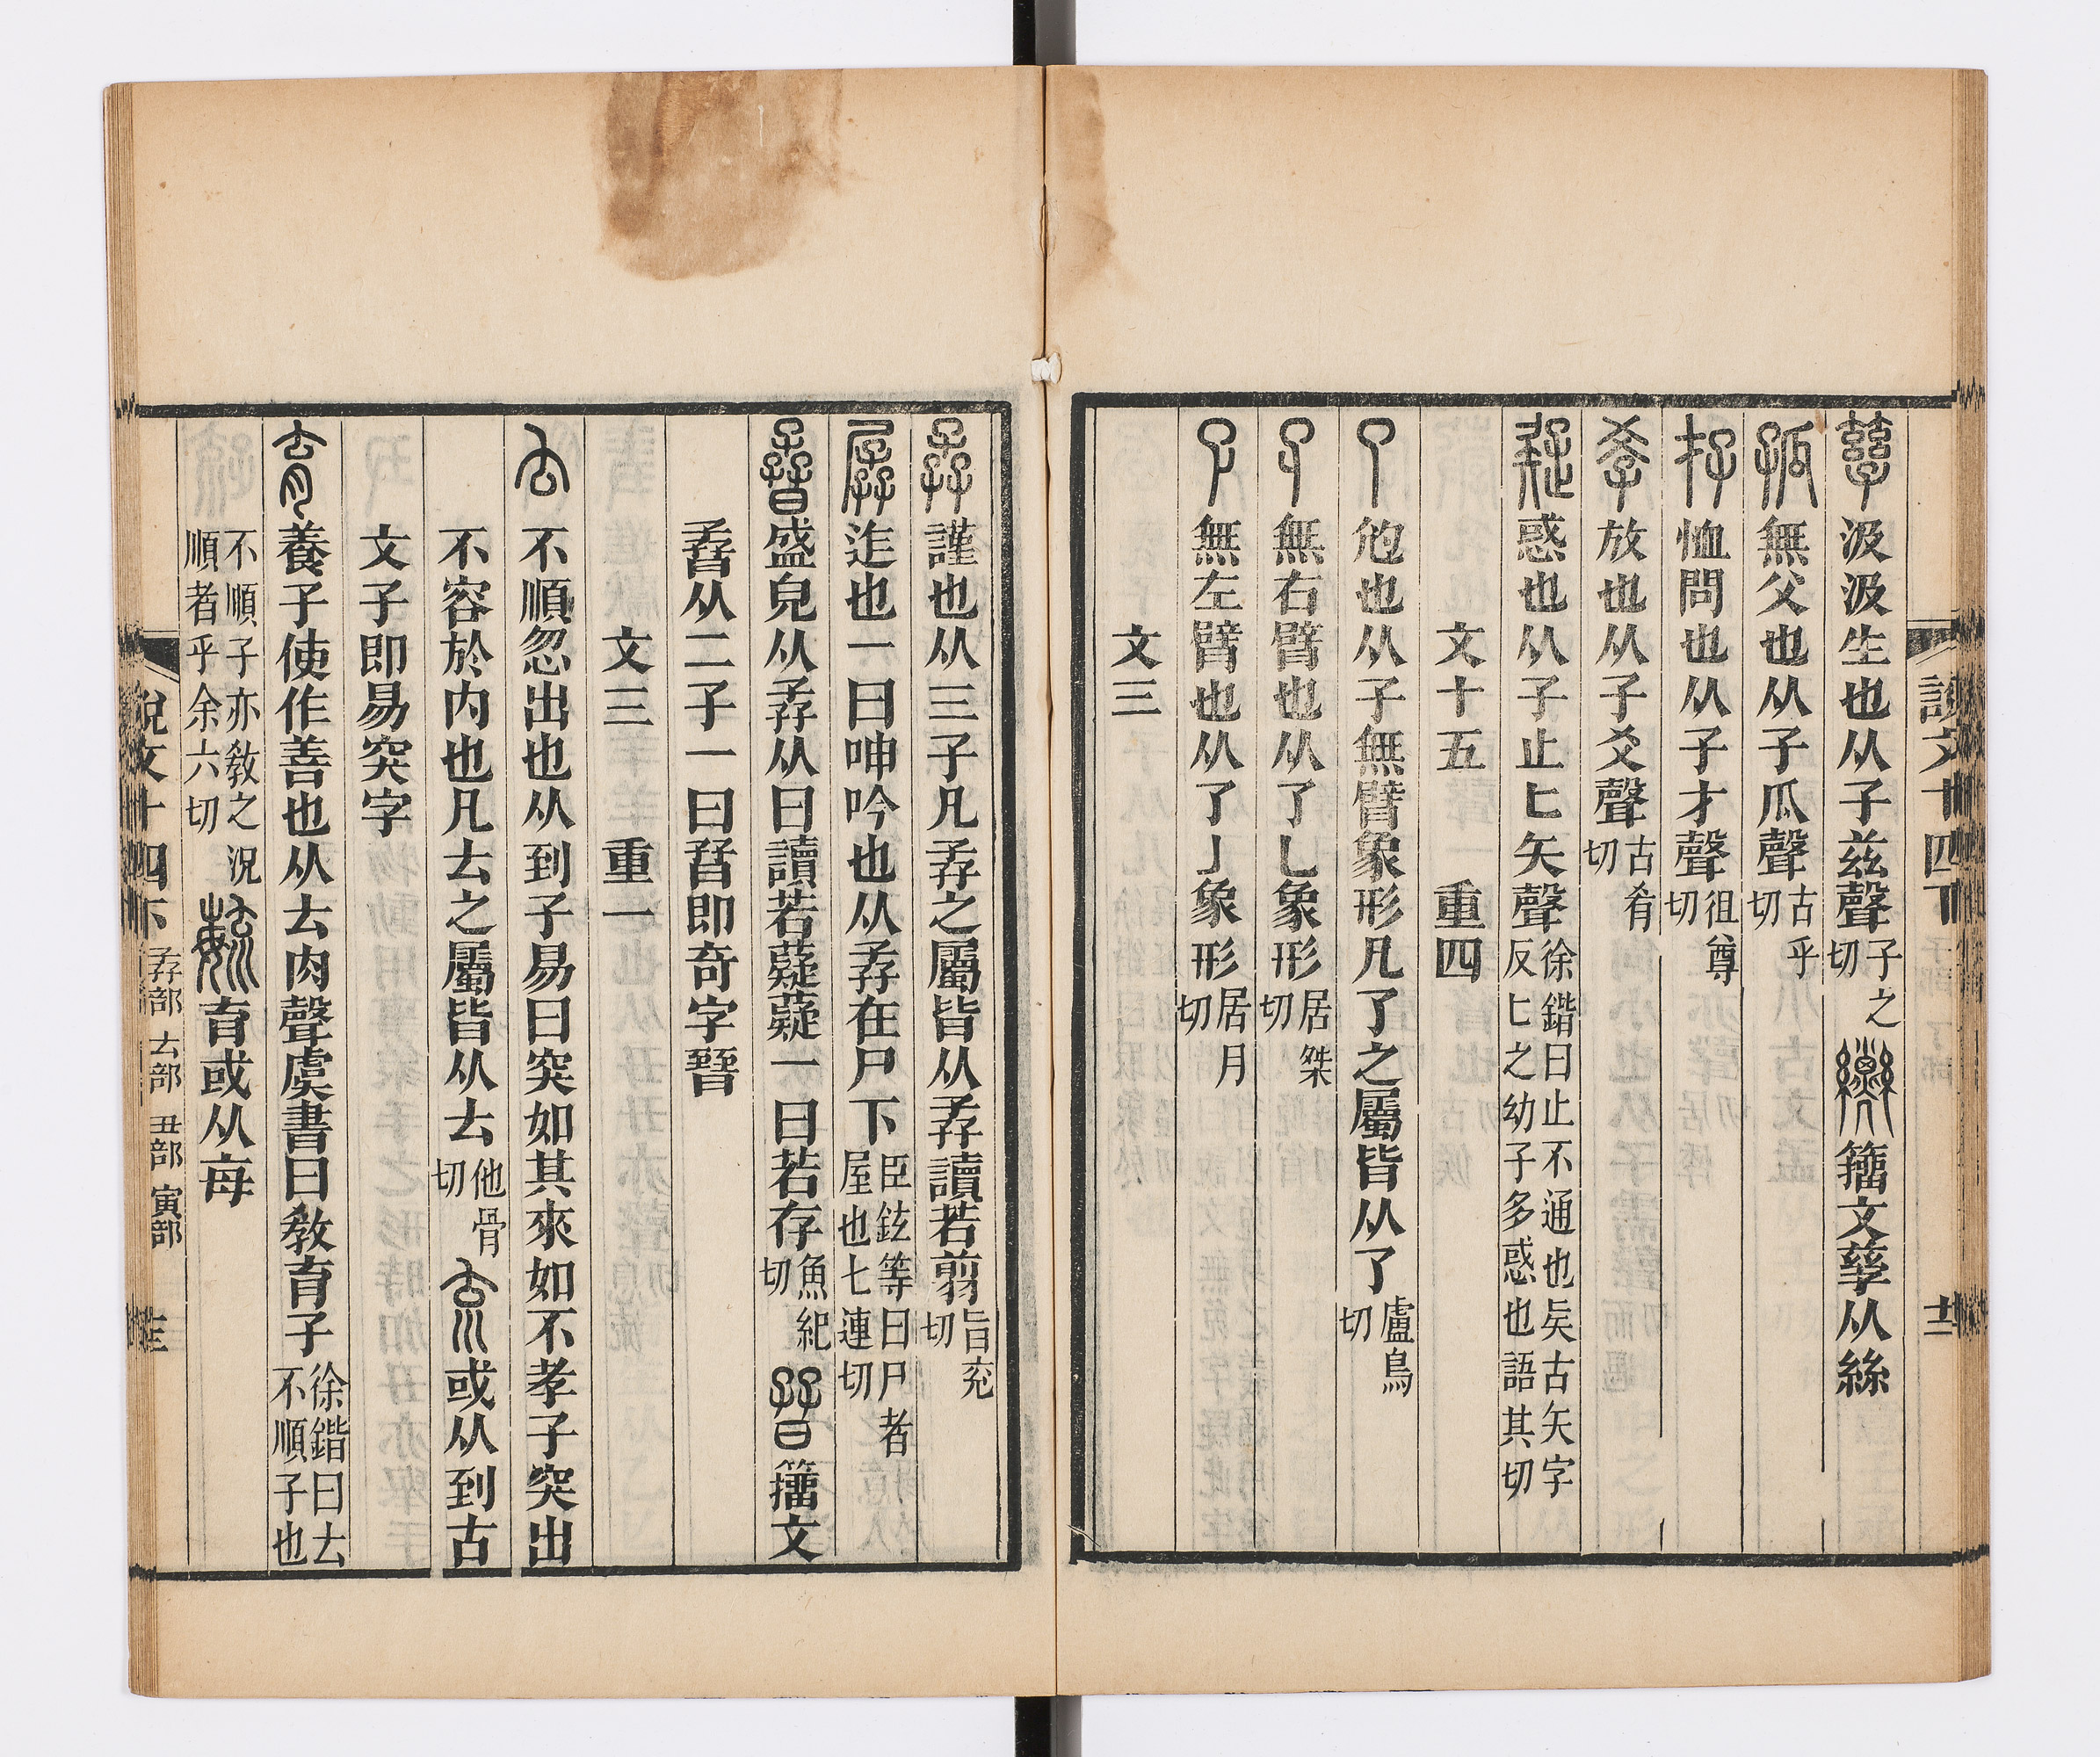 說文十四下
孳汲汲生也从子茲聲子之切𦇵籒文孳从絲
孤無父也从子瓜聲古乎切
存恤問也从子才聲徂尊切
𡥉放也从子爻聲古肴切
疑惑也从子止匕矢聲徐鍇曰止不通也𠤕古矢字反匕之幼子多惑也語其切
文十五 重四
了尥也从子無臂象形凡了之屬皆从了盧鳥切
孑無右臂也从了乚象形居桀切
孓無左臂也从了亅象形居月切
文三
孨謹也从三子凡孨之屬皆从孨讀若翦旨兖切
孱迮也一曰呻吟也从孨在尸下臣鉉等曰尸者屋也七連切
孴盛皃从孨从日讀若薿薿一曰若存魚紀切𣊫籒文
孴从二子一曰𣅀即奇字㬜
文三 重一
𠫓不順忽出也从到子易曰突如其來如不孝子突出
不容於内也凡𠫓之屬皆从𠫓他骨切㐬或从到古
文子即易突字
育養子使作善也从𠫓肉聲虞書曰教育子徐鍇曰𠫓不順子也
不順子亦教之況順者乎余六切毓育或从每
說文十四下 孨部 𠫓部 丑部 寅部 十三